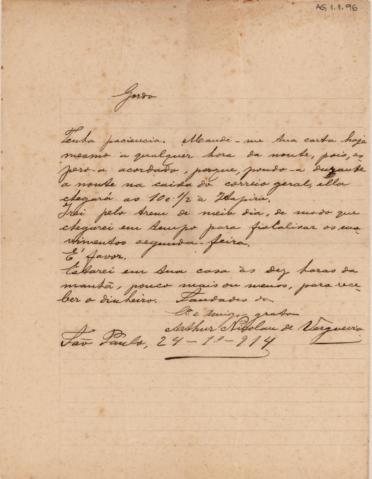 AG 1.1.96
Gordo
Tenha paciencia. Mande-me tua carta hoje
mesmo a qualquer hora da noute, pois, es
pero-a acordado, porque, pondo-a durante
a noute na caixa do correio geral, ella
chegará as 10 e 1/2 a Itapira.
Irei pelo trem de meio dia, de modo que
chegarei em tempo para fiscalisar os mo
vimentos segunda-feira.
É favor.
Estarei em tua casa ás dez horas da
manhã, pouco mais ou menos, para rece
ber o dinheiro. Saudades do
amigo grato
Arthur Nicolau de Vergueiro
São Paulo, 24-1º-914